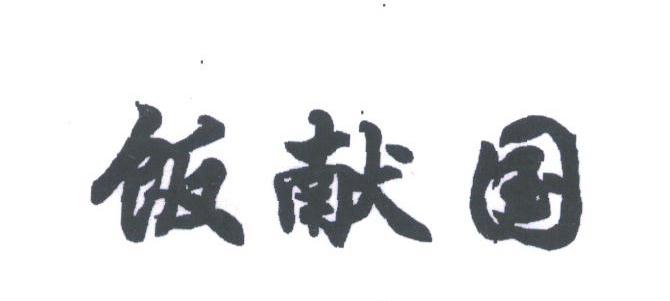 饭献国